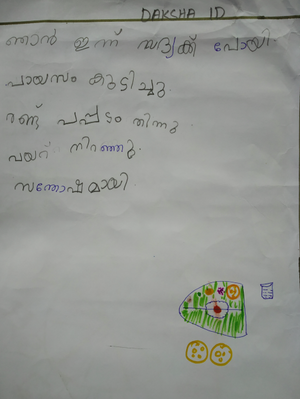 DAKSHA 1D
ഞാൻ ഇന്ന് സദ്യക്ക് പോയി.
പായസം കുടിച്ചു.
രണ്ട് പപ്പടം തിന്നു.
വയറ് നിറഞ്ഞു.
സന്തോഷമായി.